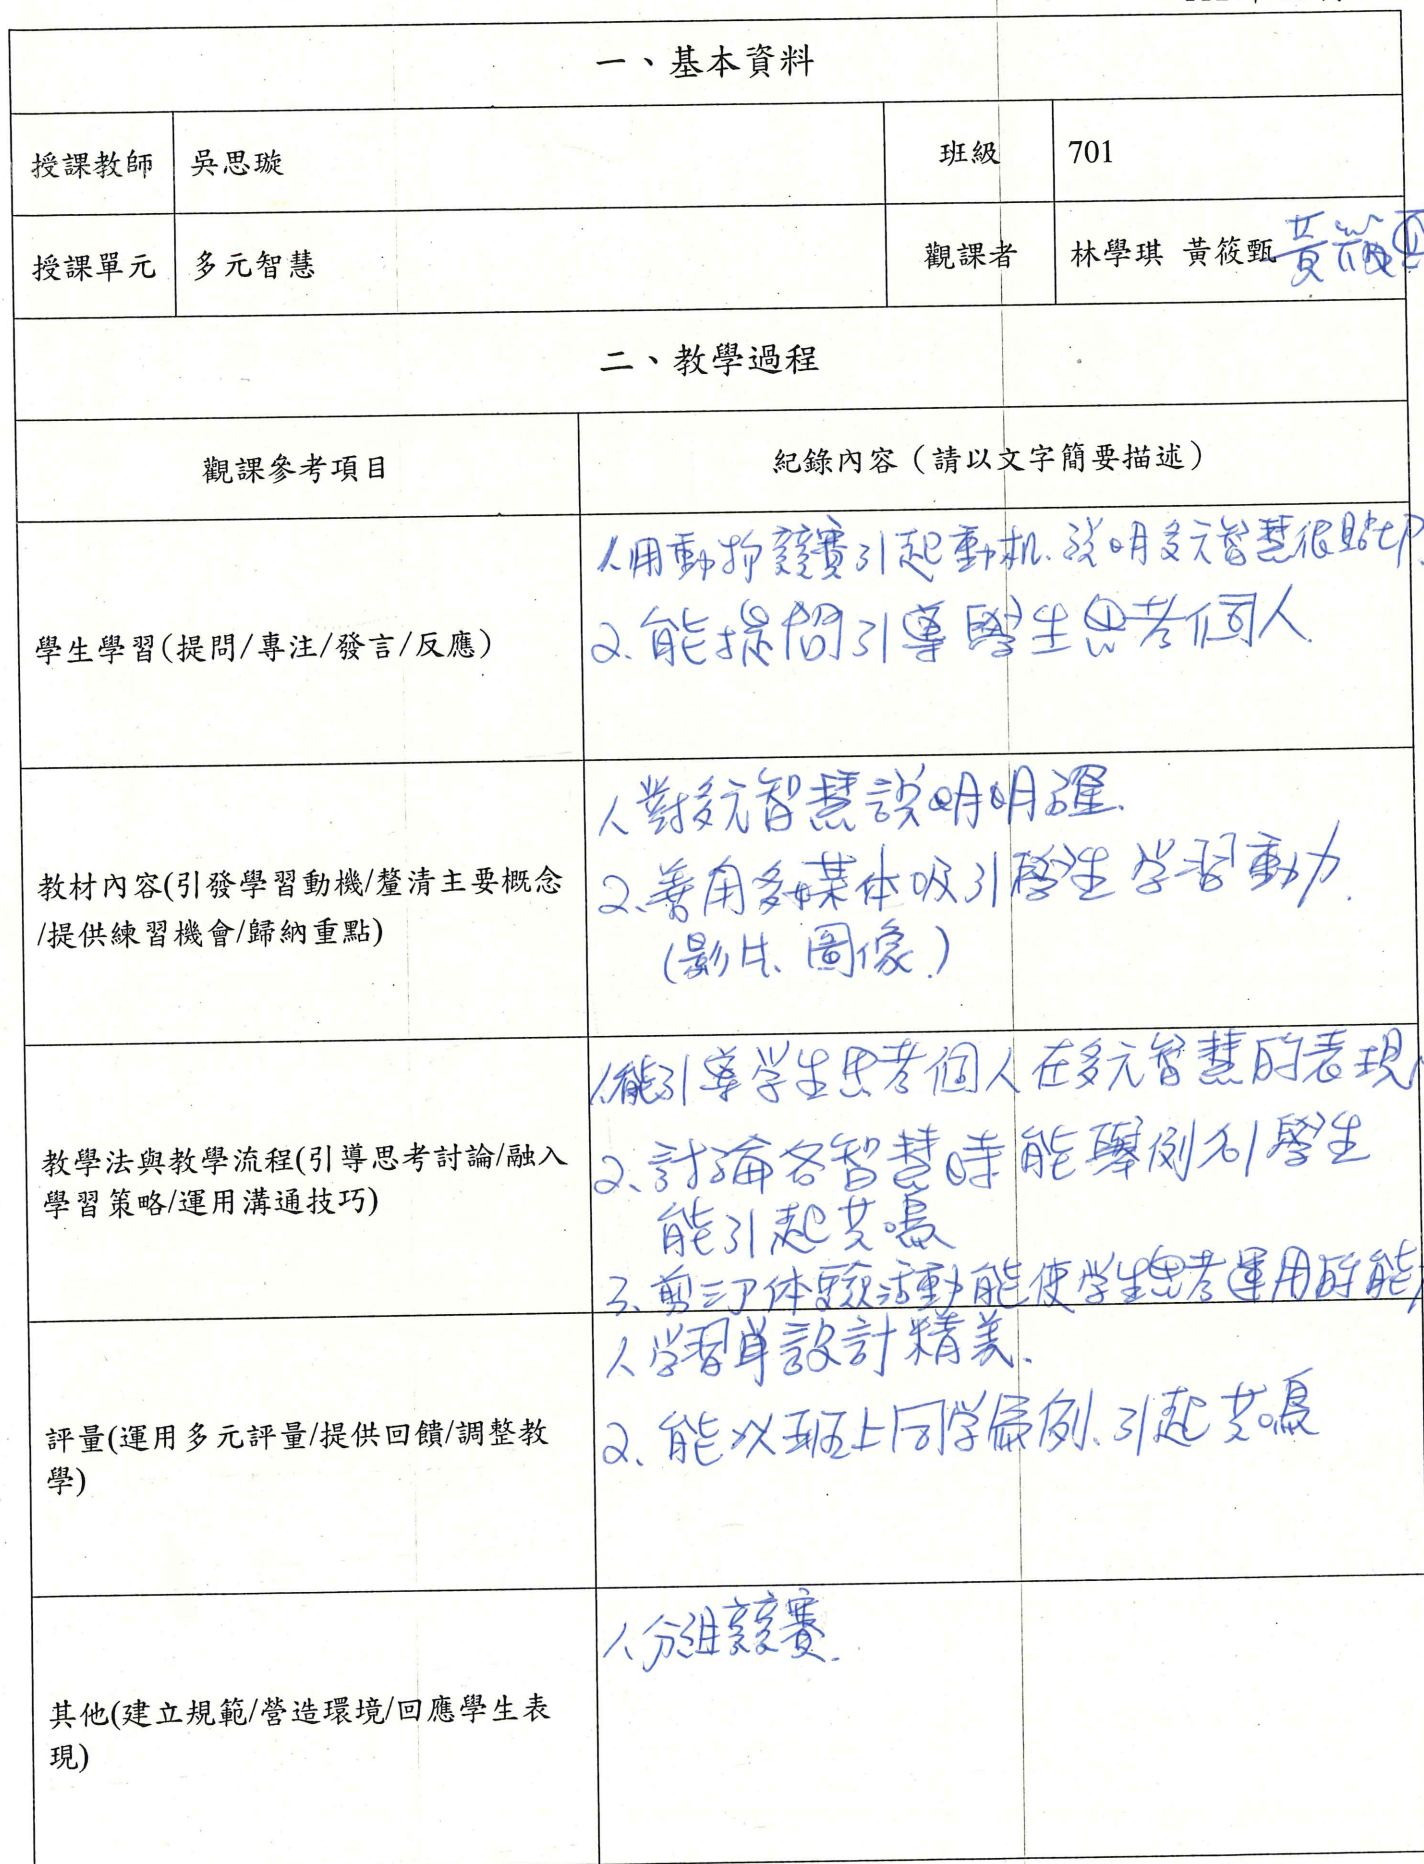 一、基本資料
授課教師 吳思璇 班級 701
授課單元 多元智慧 觀課者 林學琪 黃筱甄 黃筱甄
二、教學過程
觀課參考項目 紀錄內容（請以文字簡要描述）
學生學習(提問/專注/發言/反應)
1.用動物競賽引起動机.說明多元智慧很貼切.
2.能提問引導學生思考個人.
教材內容(引發學習動機/釐清主要概念
/提供練習機會/歸納重點)
1.對多元智慧說明明確.
2.善用多媒体吸引學生学習動力.
(影片、圖像)
教學法與教學流程(引導思考討論/融入
學習策略/運用溝通技巧)
1.能引導学生思考個人在多元智慧的表現
2.討論各智慧時能舉例 學生
能引起共鳴
3. 体驗活動能使学生思考運用的能
評量(運用多元評量/提供回饋/調整教
學)
1.学習單設計精美.
2.能以班上同学為例、引起共鳴
其他(建立規範/營造環境/回應學生表
現)
1.分組競賽.